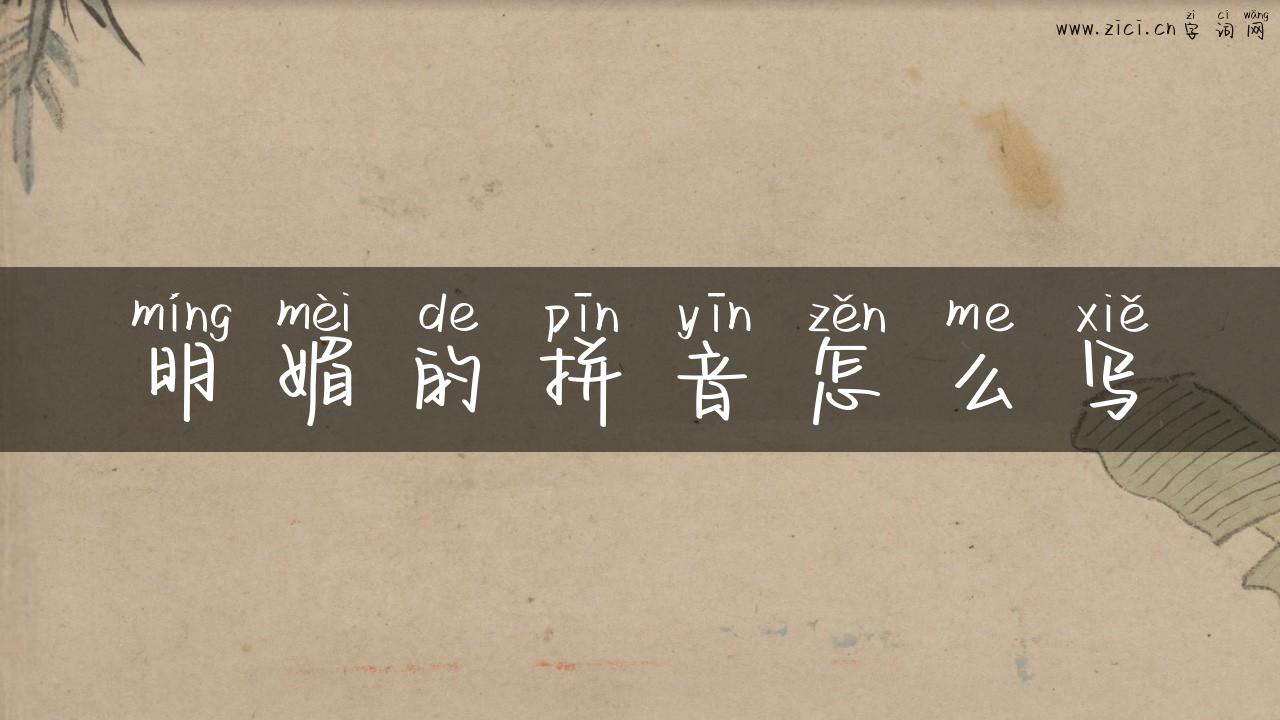 zì cí wǎng
www.zici.cn 字 词 网
míng mèi de pīn yīn zěn me xiě
明 媚 的 拼 音 怎 么 写